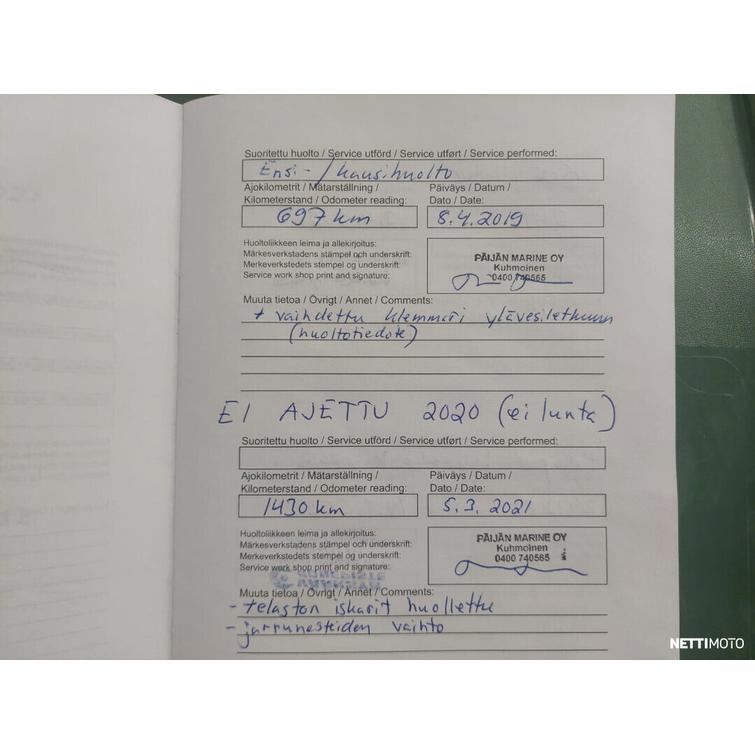 Suoritettu huolto / Service utförd / Service utført / Service performed:
Ensi- / kausihuolto
Ajokilometrit / Mätarställning /
Kilometerstand / Odometer reading:
697 km
Päiväys / Datum /
Dato / Date:
8.4.2019
Huoltoliikkeen leima ja allekirjoitus:
Märkesverkstadens stämpel och underskrift:
Merkeverkstedets stempel og underskrift:
Service work shop print and signature:
PÄIJÄN MARINE OY
Kuhmoinen
0400 740565
Muuta tietoa / Övrigt / Annet / Comments:
+ vaihdettu klemmari ylävesiletkuun
(huoltotiedote)
EI AJETTU 2020 (ei lunta)
Suoritettu huolto / Service utförd / Service utført / Service performed:
Ajokilometrit / Mätarställning /
Kilometerstand / Odometer reading:
1430 km
Päiväys / Datum /
Dato / Date:
5.3.2021
Huoltoliikkeen leima ja allekirjoitus:
Märkesverkstadens stämpel och underskrift:
Merkeverkstedets stempel og underskrift:
Service work shop print and signature:
PÄIJÄN MARINE OY
Kuhmoinen
0400 740565
Muuta tietoa / Övrigt / Annet / Comments:
- telaston iskarit huollettu
- jarrunesteiden vaihto
NETTIMOTO